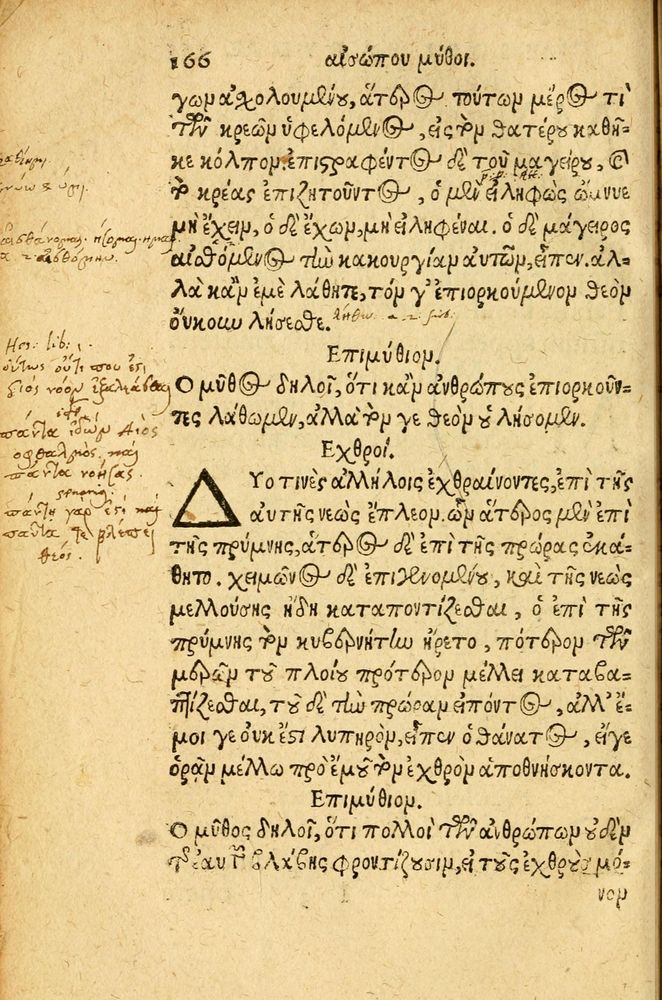 166 αἰσώπου μῦθοι.
γων ἀχολουμένου, ἅτερος τούτων μέρος τὶ
τῶν κρεῶν ὑφελόμενος, εἰς τὸν θατέρου καθῆ-
κε κόλπον. ἐπιστραφέντος δὲ τοῦ μαγείρου, καὶ
τὸ κρέας ἐπιζητοῦντος, ὁ μὲν εἰληφὼς ὤμνυε
μὴ ἔχειν, ὁ δὲ ἔχων, μὴ εἰληφέναι. ὁ δὲ μάγειρος
αἰσθόμενος τὴν κακουργίαν αὐτῶν, εἶπεν. ἀλ-
λὰ κἂν ἐμὲ λάθητε, τόν γ' ἐπιορκούμενον θεὸν
οὔκουν λήσεσθε.
Επιμύθιον.
Ο μῦθος δηλοῖ, ὅτι κἂν ἀνθρώπους ἐπιορκοῦν-
τες λάθωμεν, ἀλλὰ τόν γε θεὸν οὐ λήσομεν.
Εχθροί.
ΔΥο τινὲς ἀλλήλοις ἐχθραίνοντες, ἐπὶ τῆς
αὐτῆς νεὼς ἔπλεον. ὧν ἅτερος μὲν ἐπὶ
τῆς πρύμνης, ἅτερος δὲ ἐπὶ τῆς πρώρας ἐκά-
θητο. χειμῶνος δὲ ἐπιγενομένου, καὶ τῆς νεὼς
μελλούσης ἤδη καταποντίζεσθαι, ὁ ἐπὶ τῆς
πρύμνης τὸν κυβερνήτην ἤρετο, πότερον τῶν
μερῶν τοῦ πλοίου πρότερον μέλλει καταβα-
πτίζεσθαι, τοῦ δὲ τὴν πρώραν εἰπόντος, ἀλλ' ἔ-
μοι γε οὐκ ἔστι λυπηρὸν, εἶπεν ὁ θάνατος, εἴγε
ὁρᾶν μέλλω πρὸ ἐμοῦ τὸν ἐχθρὸν ἀποθνήσκοντα.
Επιμύθιον.
Ο μῦθος δηλοῖ, ὅτι πολλοὶ τῶν ἀνθρώπων οὐδὲν
τῆς ἑαυτῶν βλάβης φροντίζουσιν, εἰ τοὺς ἐχθροὺς μό-
νον
Hes: lib: 1.
πάντα ἰδὼν Διὸς
ὀφθαλμὸς καὶ
πάντα νοήσας.
πάντη γάρ ἐστι καὶ
πάντα βλέπει
θεός.